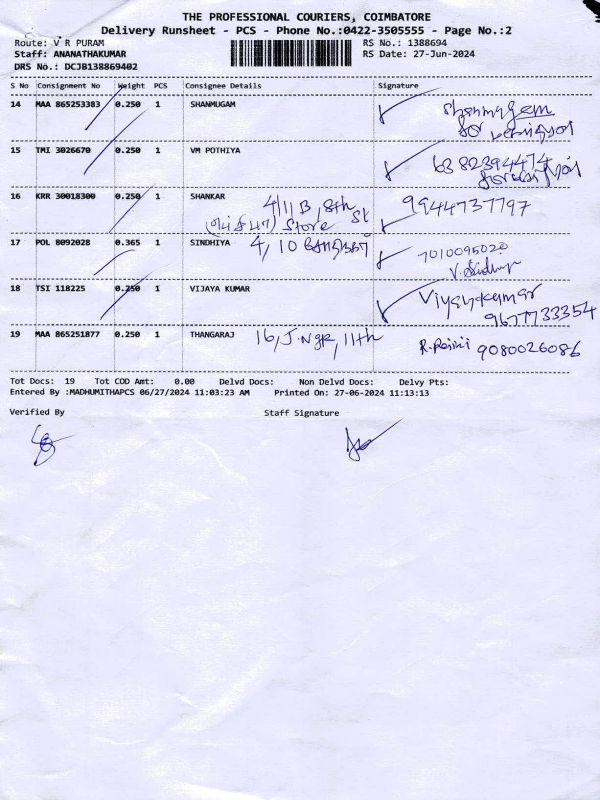 THE PROFESSIONAL COURIERS, COIMBATORE
Delivery Runsheet - PCS - Phone No.:0422-3505555 - Page No.:2
Route: V R PURAM
RS No.: 1388694
Staff: ANANATHAKUMAR
RS Date: 27-Jun-2024
DRS No.: DCJB138869402
S No Consignment No Weight PCS Consignee Details Signature
14 MAA 865253383 0.250 1 SHANMUGAM
Shanmugam
15 TMI 3026670 0.250 1 VM POTHIYA
6382394474
16 KRR 30018300 0.250 1 SHANKAR 4/11 B, 8th 9944737797
Store St
17 POL 8092028 0.365 1 SINDHIYA 4, 10 7010095020
V. Sindhiya
18 TSI 118225 0.250 1 VIJAYA KUMAR Vijayakumar
9677733354
19 MAA 865251877 0.250 1 THANGARAJ 16, J. Ngr, 11th R. 9080026086
Tot Docs: 19 Tot COD Amt: 0.00 Delvd Docs: Non Delvd Docs: Delvy Pts:
Entered By :MADHUMITHAPCS 06/27/2024 11:03:23 AM Printed On: 27-06-2024 11:13:13
Verified By Staff Signature